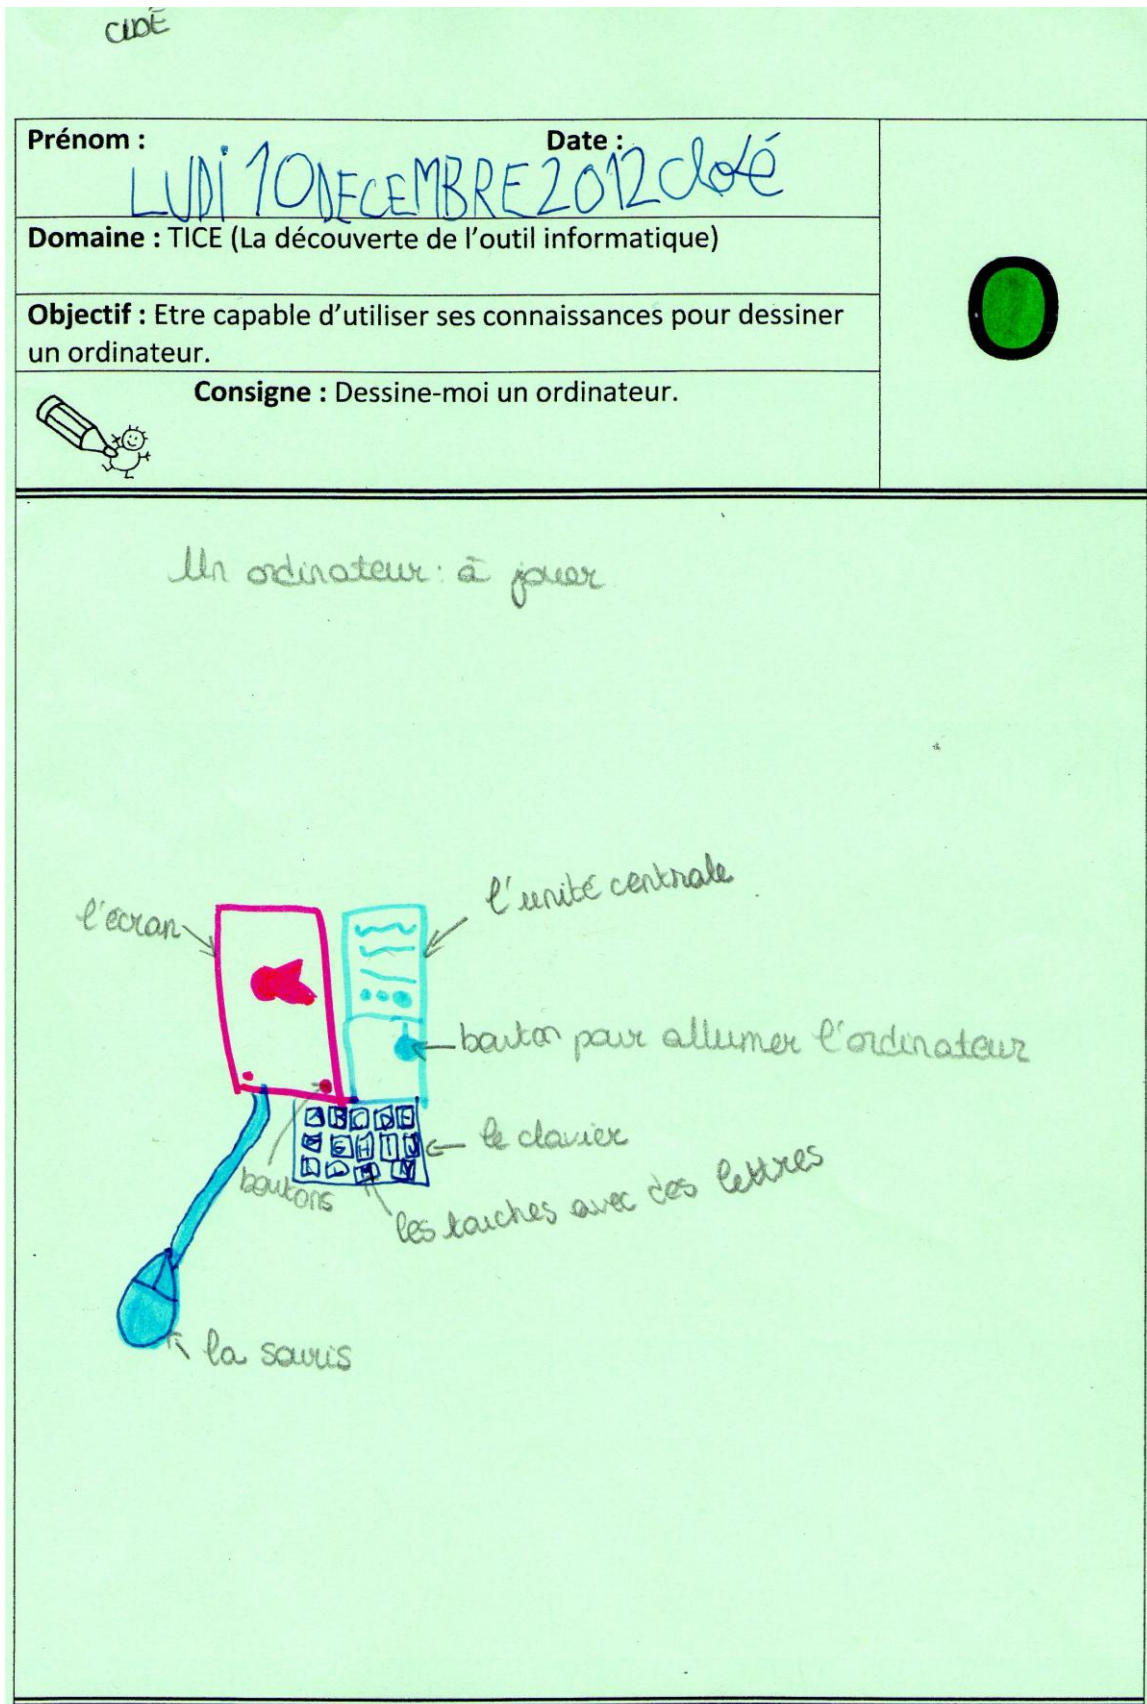 CLOÉ
Prénom : Date :
LUDI 10 DECEMBRE 2012 cloé
Domaine : TICE (La découverte de l'outil informatique)
Objectif : Etre capable d'utiliser ses connaissances pour dessiner
un ordinateur.
Consigne : Dessine-moi un ordinateur.
Un ordinateur : à jouer
l'écran
l'unité centrale
bouton pour allumer l'ordinateur
A B C D E
G H I J
L M N
le clavier
boutons
les touches avec des lettres
la souris